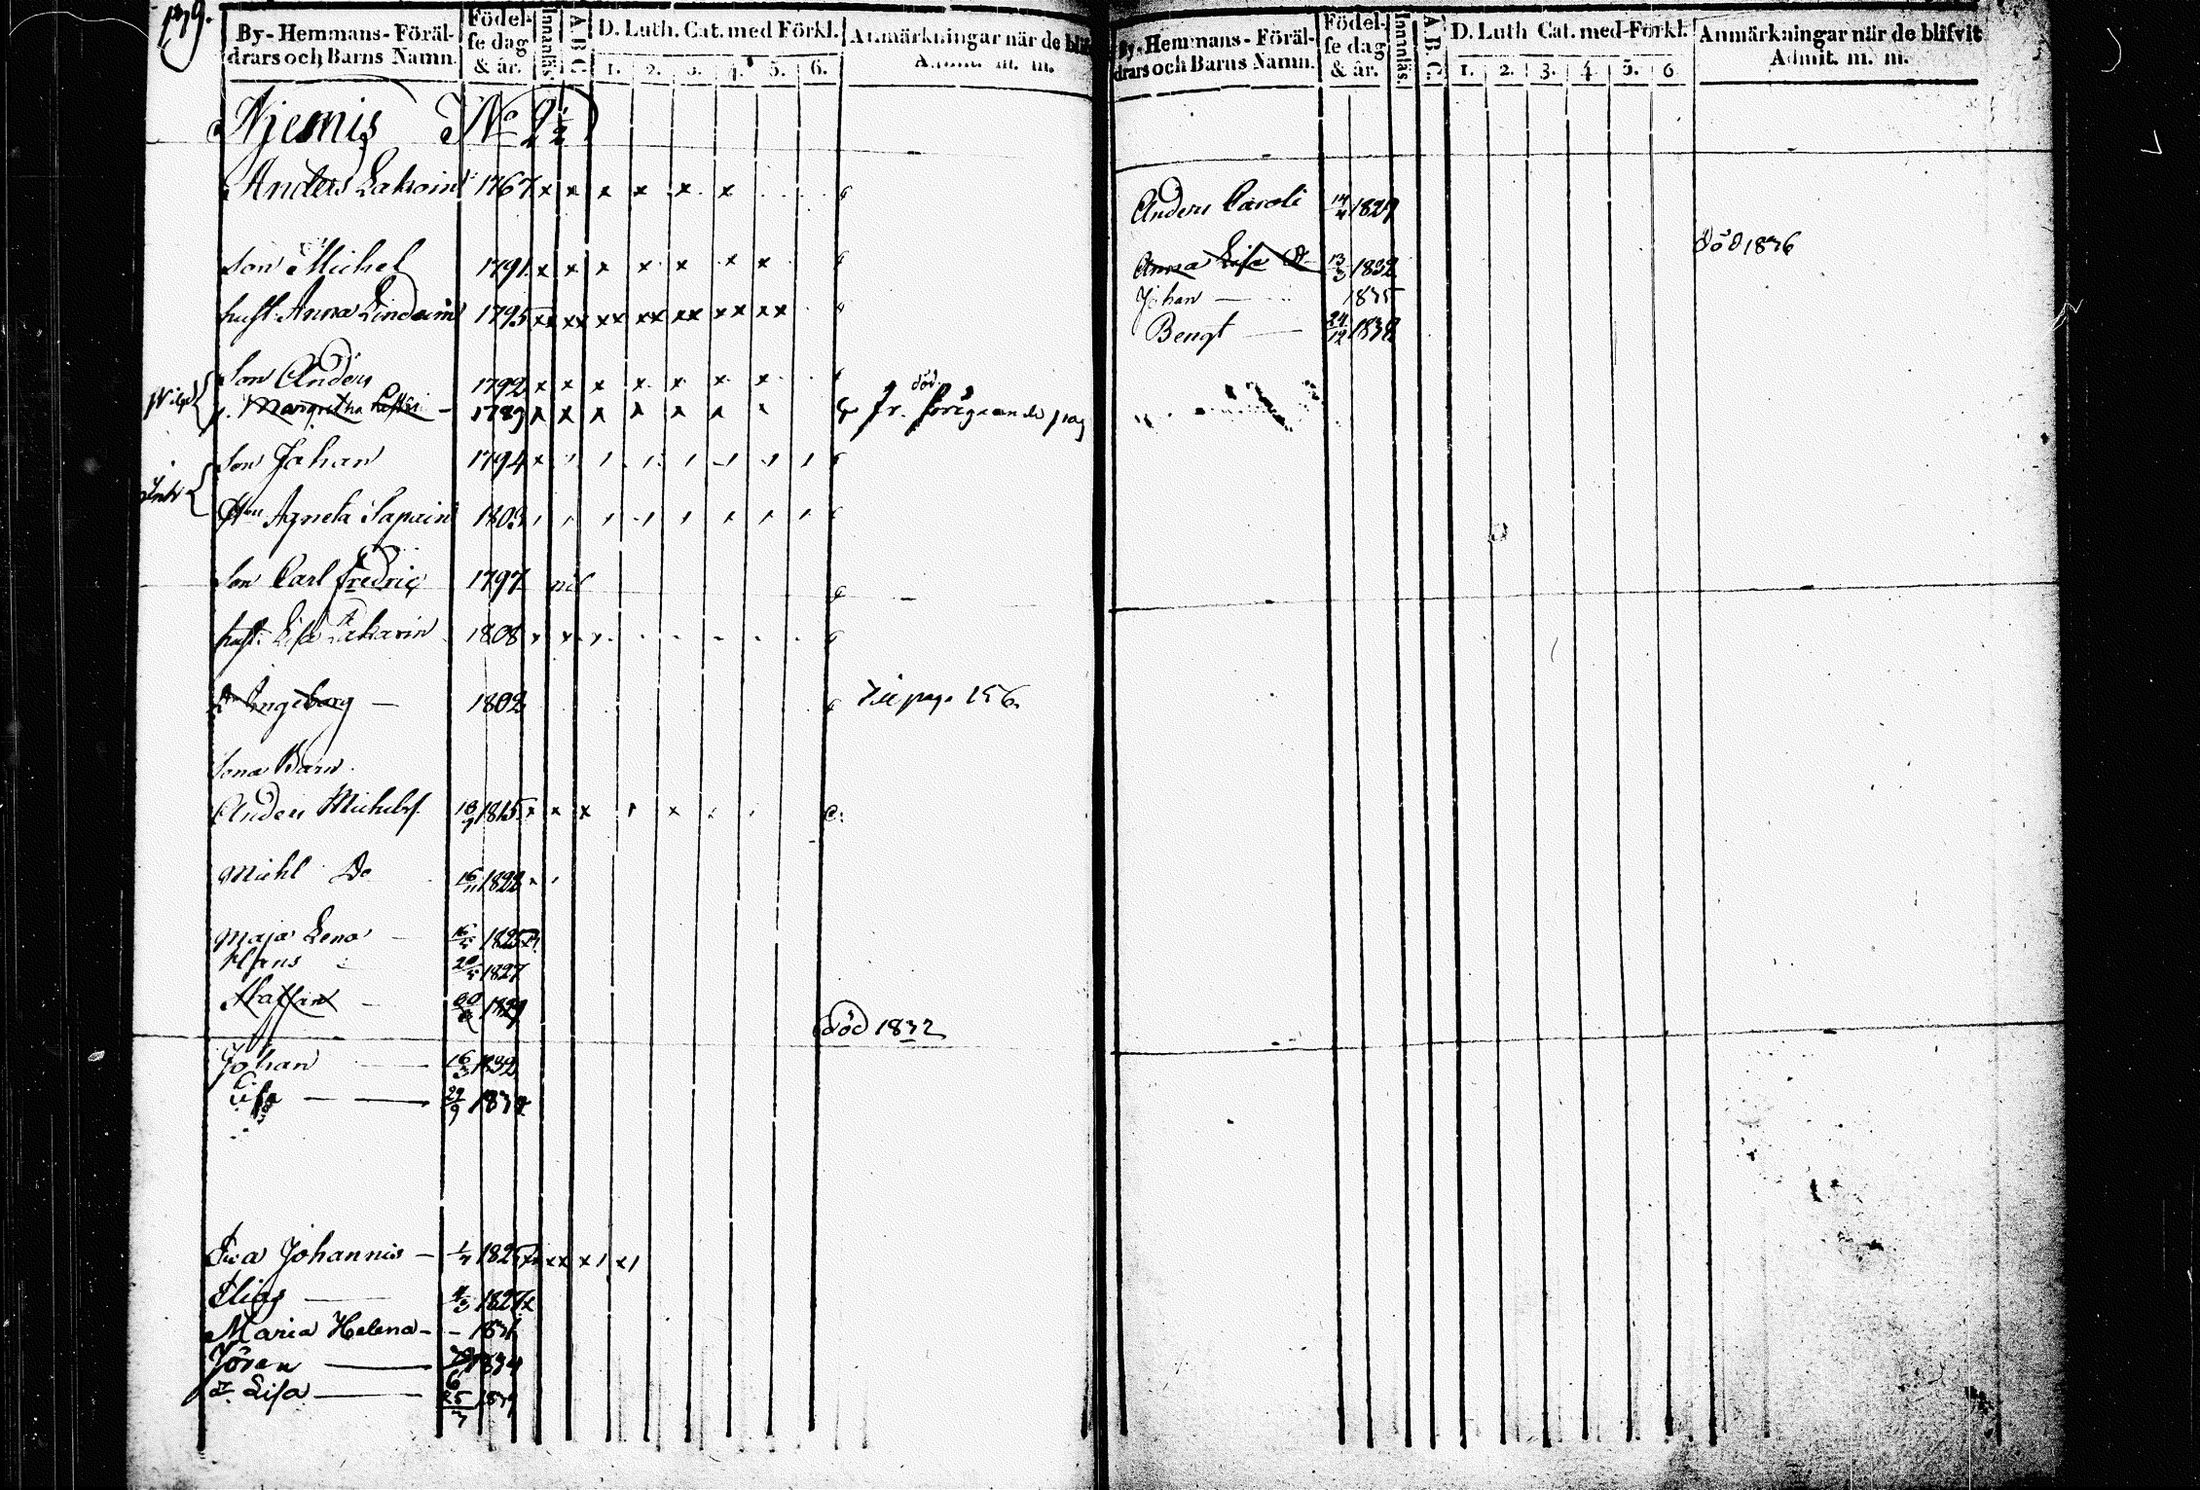 179.
By-Hemmans-Föräl-
drars och Barns Namn.
Födel-
se dag
& år.
Innanläs.
A.B.C.
D. Luth. Cat. med Förkl.
1. 2. 3. 4. 5. 6.
Anmärkningar när de blif
Admit. m. m.
Njemis No 2 1/2
Anders Lakoin 1767 x x x x x x
Son Michel 1791 x x x x x x x
hust. Anna Lindoin 1795 xx xx xx xx xx xx xx
Son Anders 1792 x x x x x x x
Margretha 1789 x x x x x x x död
fr. föregaende pag
Son Johan 1794 x
Hu Agneta Papain 1803
Son Carl Fredric 1797 nil
hust. Lisa Lakarin 1808 x x x
D Ingeborg — 1802 Til page 156
Sona Barn.
Anders Michelss. 18/9 1815 x x x x
Michl Do 16/11 1822
Maja Lena — 16/5 1825
Hans 20/5 1827
Staffan — 1829
död 1832
Johan — 16/3 1832
Lisa — 29/9 1834
Eva Johannis — 1/4 1825 xx xx x1 x1
Elias — 4/3 1827 x
Maria Helena - - 1831
Jöran — 1834
Lisa — 25/7 1839
By-Hemmans-Föräl-
drars och Barns Namn.
Födel-
se dag
& år.
Innanläs.
A.B.C.
D. Luth Cat. med Förkl.
1. 2. 3. 4. 5. 6
Anmärkningar när de blifvit
Admit. m. m.
Anders Caroli 14/4 1829
död 1836
Anna Lisa D 13/3 1832
Johan — 1835
Bengt — 24/12 1838